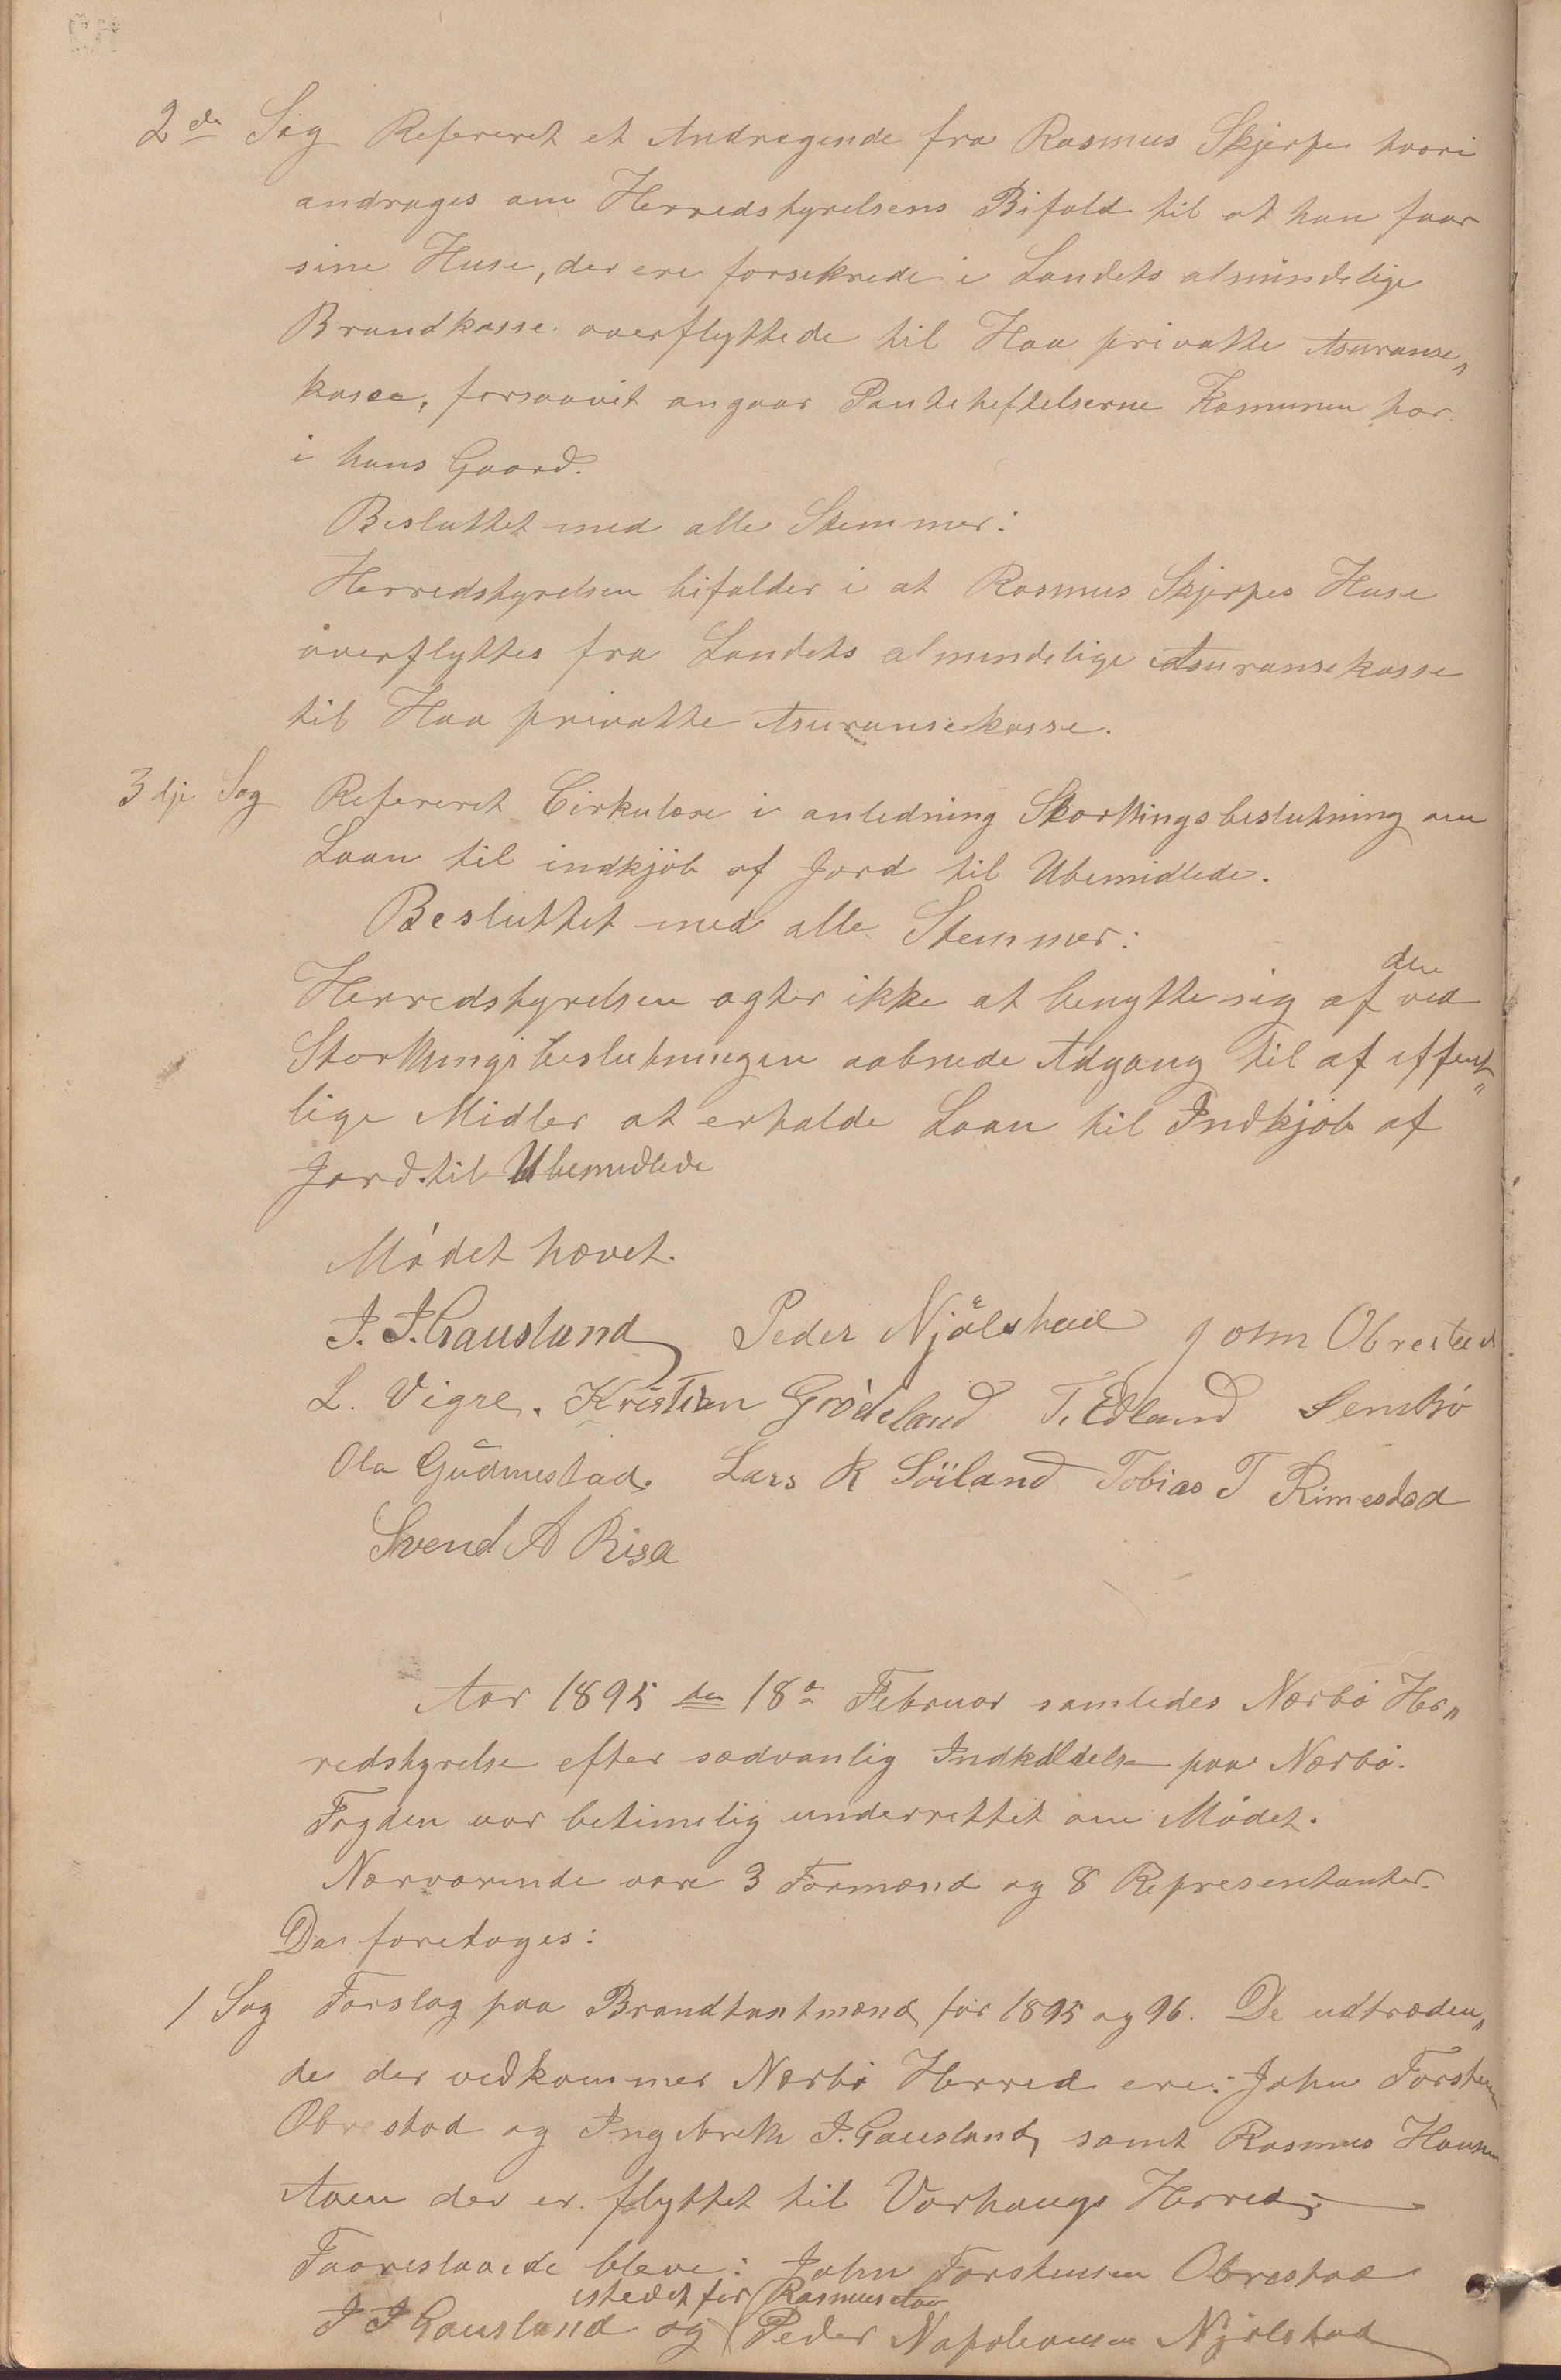 2de Sag Refereret et Andragende fra Rasmus Skjerpe hvori
andrages om Herredstyrelsens Bifald til at han faar
sine Huse, der ere forsekrede i Landets almindelige
Brandkasse overflyttede til Haa privatte Asuranse„
kasse, forsaavit angaar Panteheftelserne Komunen har
i hans Gaard.
Besluttet med alle Stemmer:
Herredstyrelsen bifalder i at Rasmus Skjerpes Huse
överflyttes fra Landets almindelige Asuransekasse
til Haa privatte Asuransekasse.
3dje Sag Refereret Cirkulære i anledning Storthingsbeslutning om
Laan til indkjöb af Jord til Ubemidlede.
Besluttet med alle Stemmer:
Herredstyrelsen agter ikke at benytte sig af den ved
Storthingsbeslutningen aabnede Adgang til af offent„
lige Midler at erholde Laan til Indkjöb af
Jord til Ubemidlede
Mödet hævet.
J. J. Gausland Peder Njölstad John Obrestad
L. Vigre. Kristian Grödeland T. Edland Semb
Ola Gudmestad. Lars R Söiland Tobias T Rimestad
Svend A Risa
Aar 1895 den 18de Februar samledes Nærbö Her„
redstyrelse efter sædvanlig Indkaldelse paa Nærbö.
Fogden var betimelig underrettet om Mödet.
Nærværende vare 3 Formænd og 8 Representanter.
Da foretoges:
1 Sag Forslag paa Brandtaxtmænd för 1895 og 96. De udtræden„
de der vedkommer Nærbö Herred ere: John Torstensen
Obrestad og Ingebreth J. Gausland, samt Rasmus Hansen
Aven der er flyttet til Varhaugs Herred;
Fooreslaaede bleve: John Torstensen Obrestad
istedet for Rasmus
J J Gausland og Peder Napoleonsen Njölstad